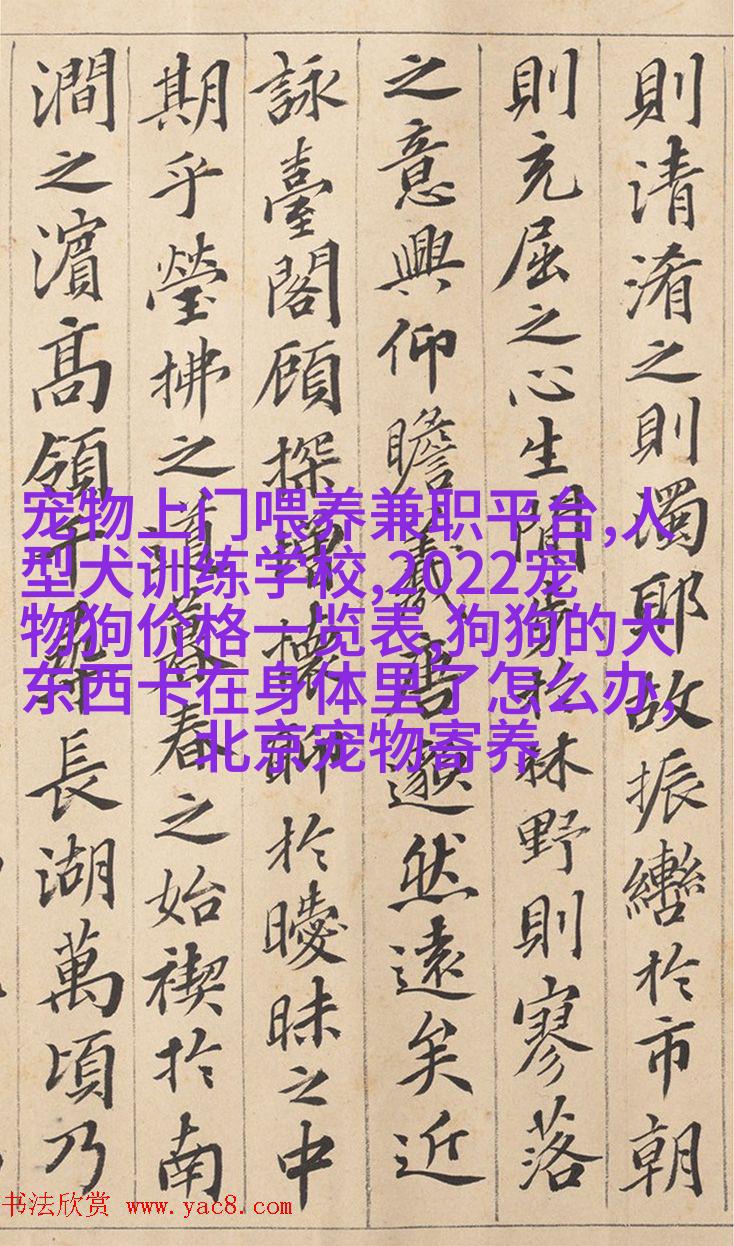 則清淆之則濁耶故振轡於市朝
則充屈之心生閒步於林野則寥落
之意興仰瞻羲唐邈然遠矣近
詠臺閣顧探增懷聊於曖昧之中
期乎瑩拂之道暮春之始禊於南
澗之濱高領千尋長湖萬頃乃
宠物上门喂养兼职平台,人
型犬训练学校,2022宠
物狗价格一览表,狗狗的大
东西卡在身体里了怎么办,
北京宠物寄养
书法欣赏 www.yac8.com